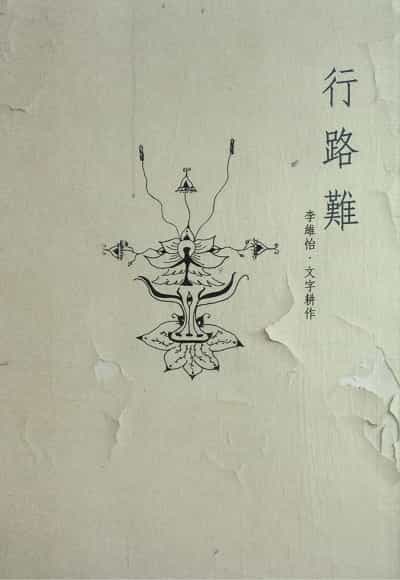 行路難
李維怡·文字耕作